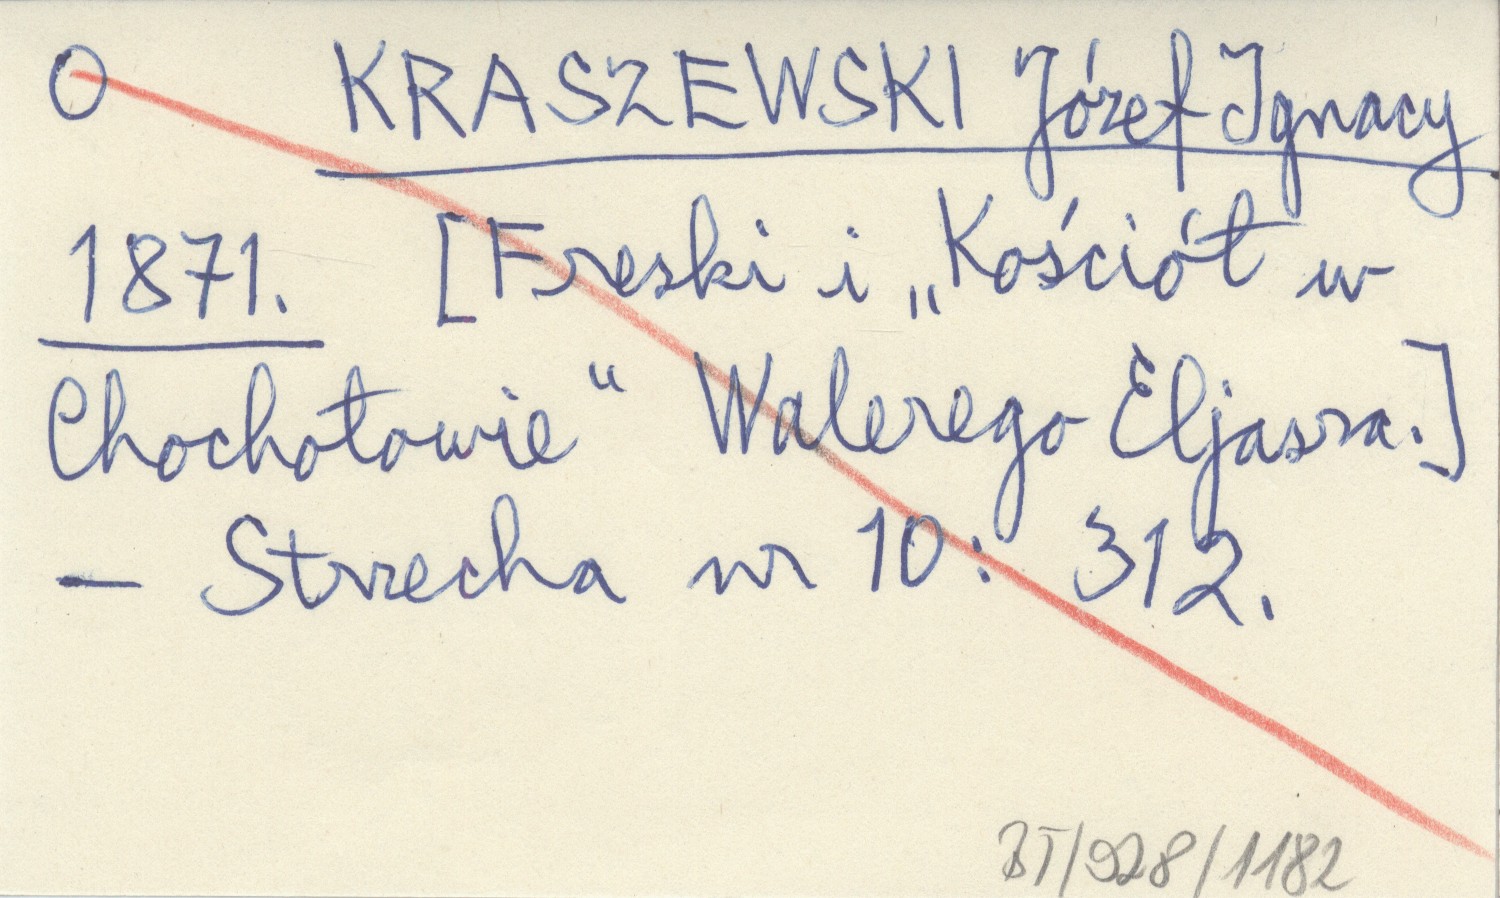 O KRASZEWSKI Józef Ignacy
1871. [Freski i „Kościół w
Chochołowie“ Walerego Eljasza.]
— Strzecha nr 10: 312.
BT/928/1182